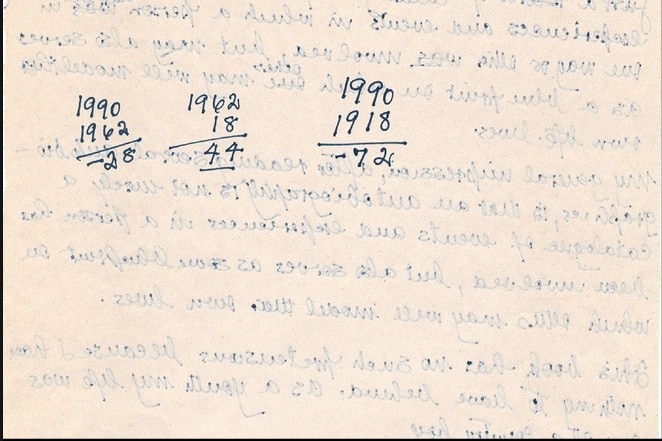 1990
1962
-28
1962
18
44
1990
1918
-72
experiences and events in which a person has in
one way or other was involved, but may also serve
as a blue print on which others may well model their
own lives
My general impression, after reading several autobio-
graphies, is that an autobiography is not merely a
catalogue of events and experiences in a person has
been involved, but also serves as some blueprint on
which others may well model their own lives.
This book has no such pretensions because I have
nothing to leave behind. As a youth my life was